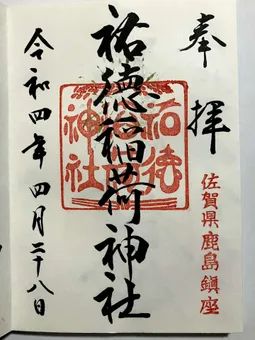 奉拝
佐賀県鹿島鎮座
祐徳稲荷神社
祐徳稲荷神社
令和四年四月二十八日